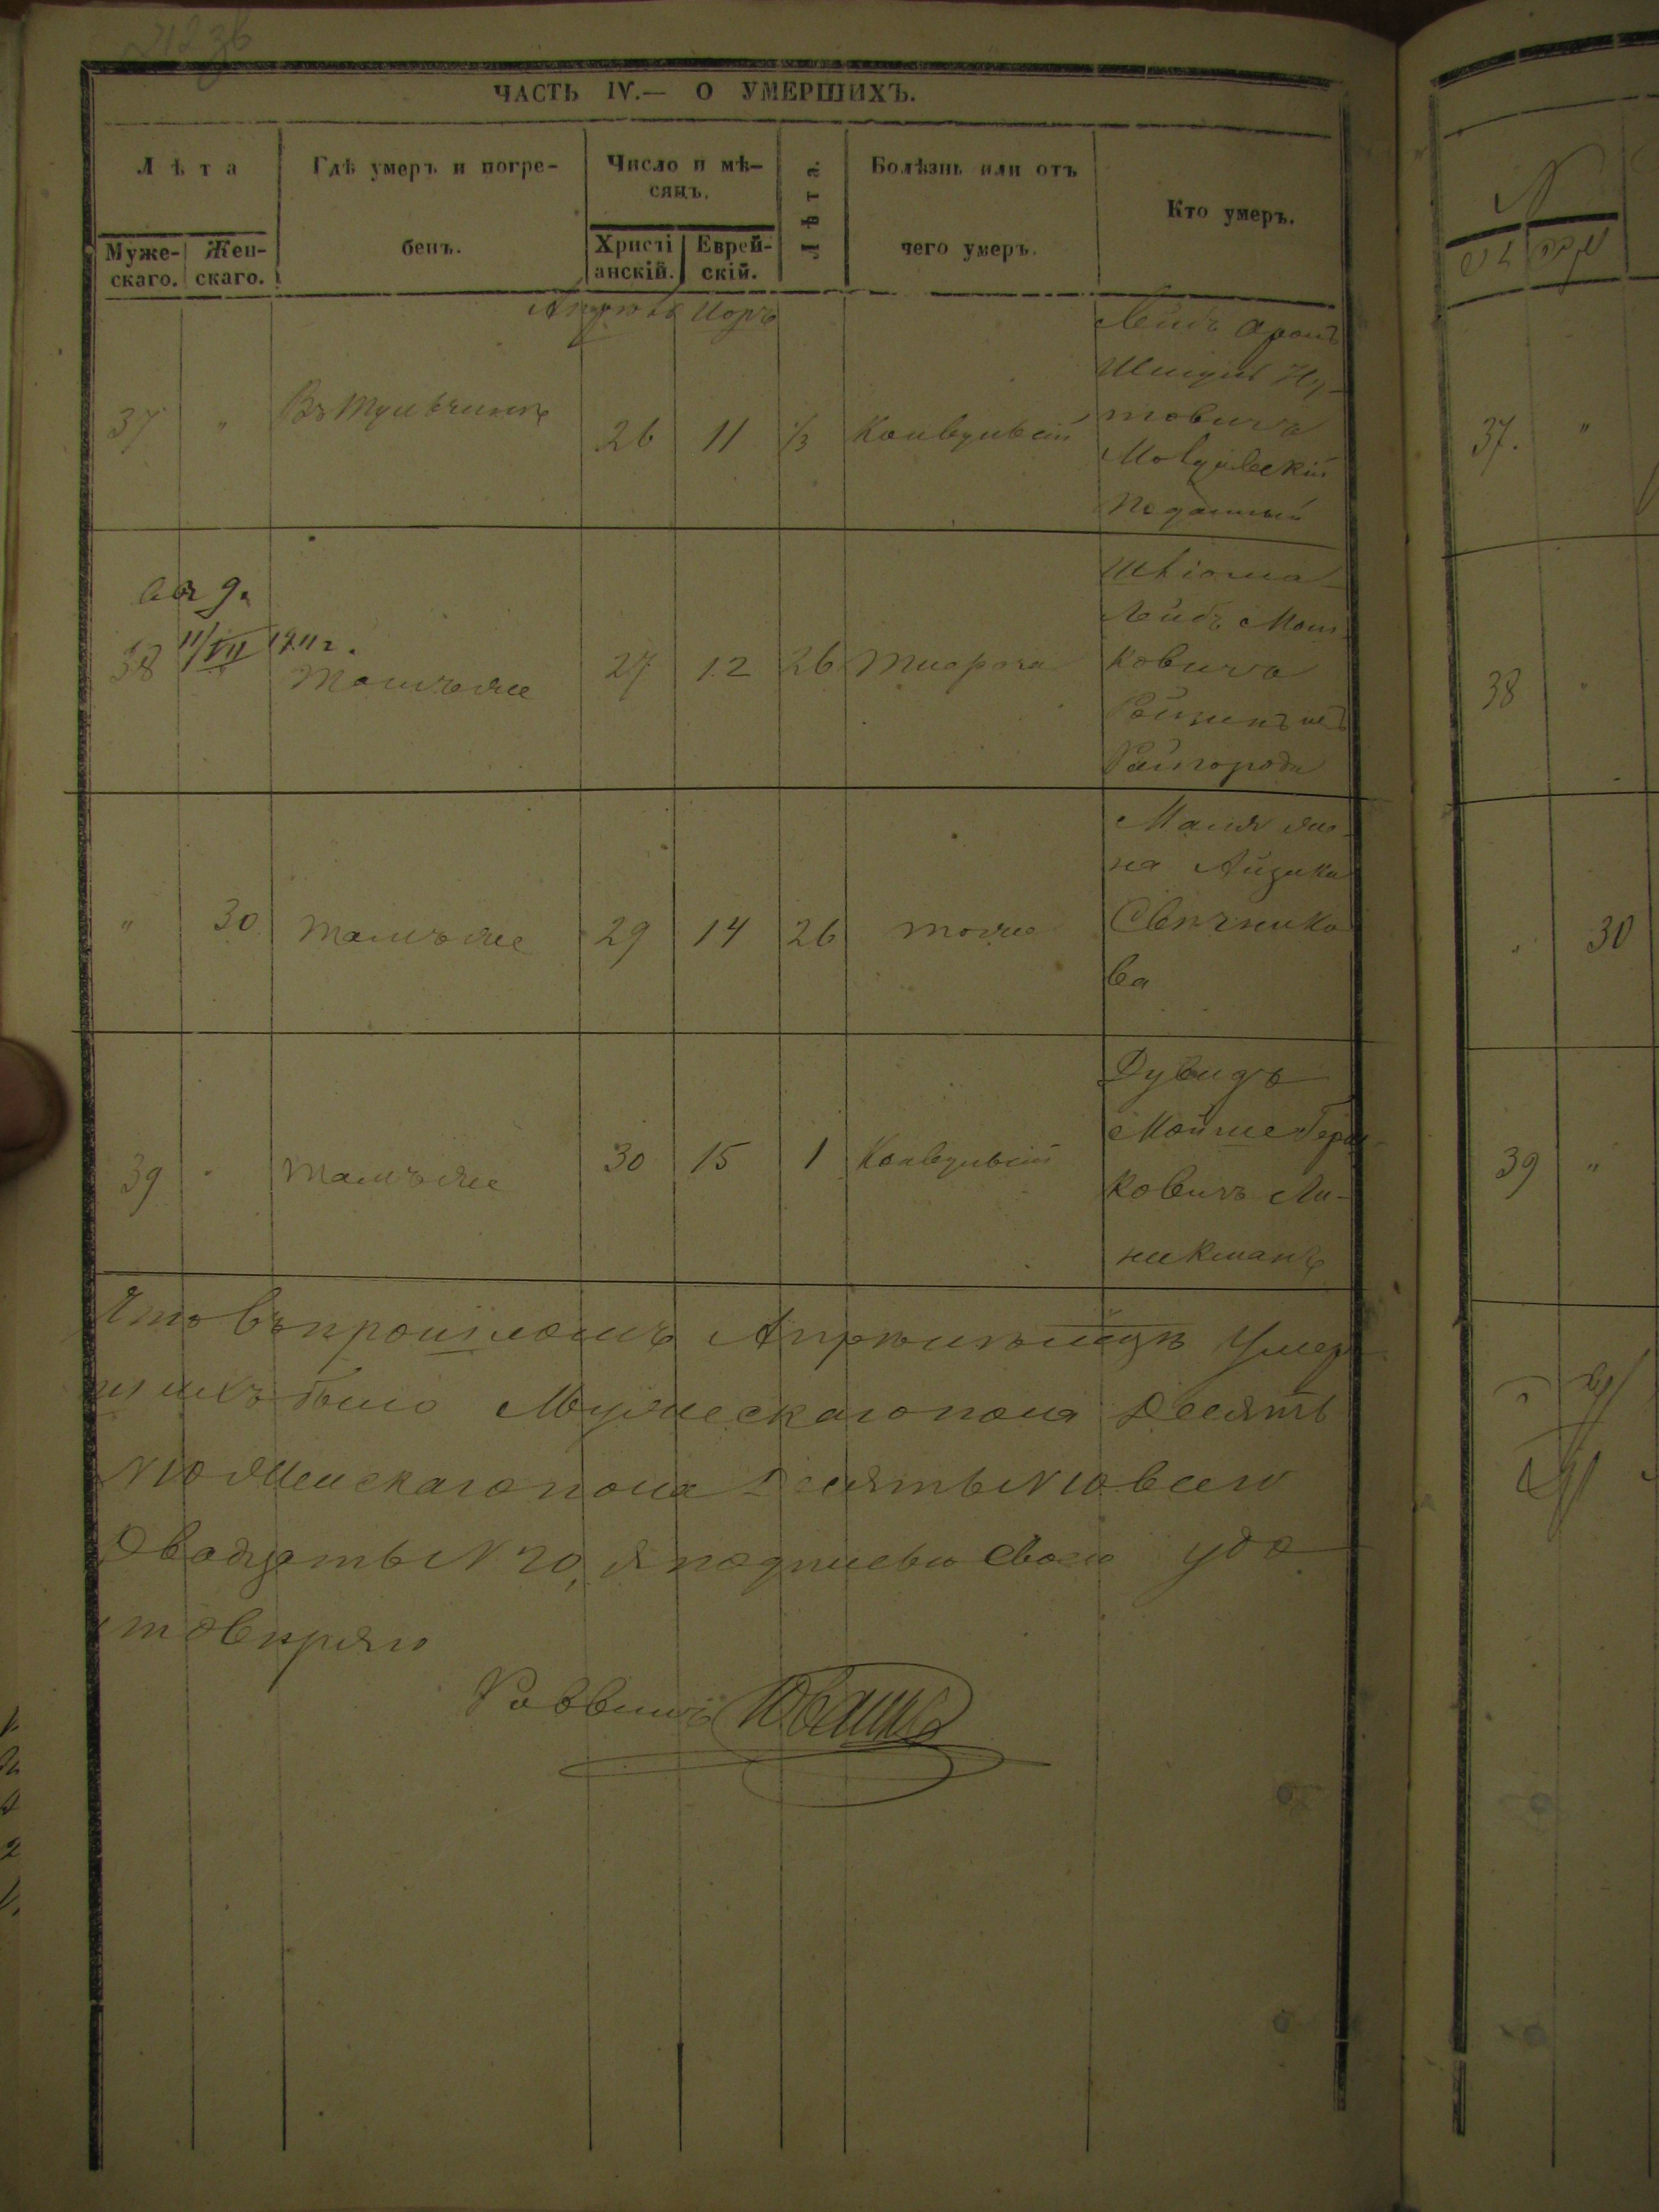 ЧАСТЬ IV.— О УМЕРШИХЪ.
Лѣта
Муже-
скаго.
Жен-
скаго.
Гдѣ умеръ и погре-
бенъ.
Число и мѣ-
сяцъ.
Христі
анскій.
Еврей-
скій.
Лѣта.
Болѣзнь или отъ
чего умеръ.
Кто умеръ.
Апрѣль Iіоръ
37 " Въ Тульчинѣ 26 11 1/3 Конвульсіи
Лейбъ Аронъ
Шмидтъ
товичъ
Молдавскій
Подданный
11/VII 1911 г.
38 Тамъ же 27 12 26
Шліома
Лейбъ Мош-
ковичъ
изъ
Райгорода
" 30 Тамъ же 29 14 26 тоже
Маля же-
на Айзика
Свѣчнико
ва
39 " Тамъ же 30 15 1 Конвульсіи
Дувидъ
Мойше Герш
ковичъ Ли-
никманъ
Что въ прошломъ Апрѣлѣ мцѣ Умер
шихъ было Мужескаго пола Десять
№ 10 Женскаго пола Десять № 10 всего
Двадцать № 20, я подписью своею удо
стовѣряю
Раввинъ
37. "
38 "
" 30
39 "